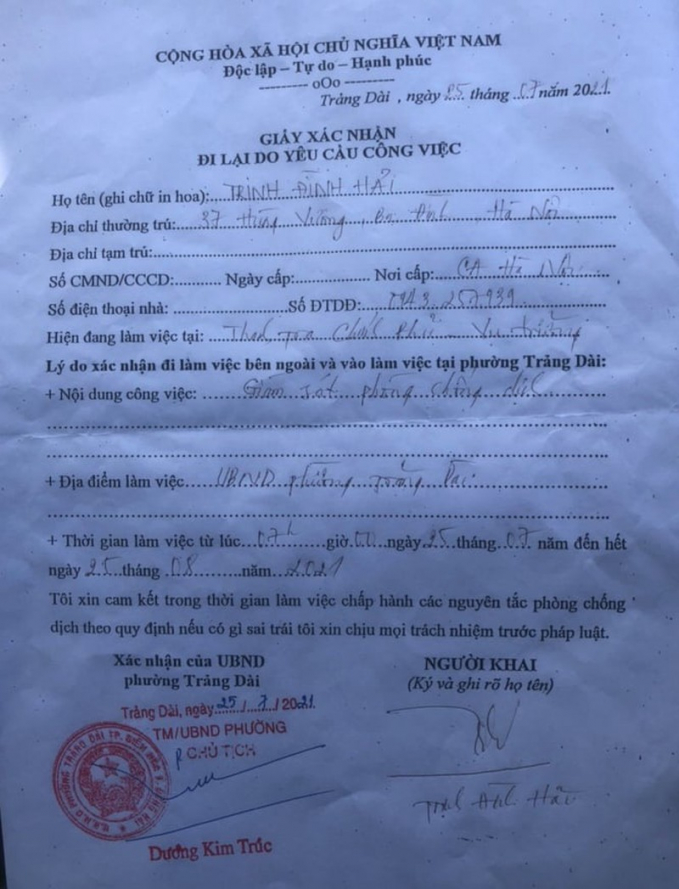 CỘNG HÒA XÃ HỘI CHỦ NGHĨA VIỆT NAM
Độc lập – Tự do – Hạnh phúc
--------- oOo ----------
Trảng Dài , ngày 25 tháng 07 năm 2021
GIẤY XÁC NHẬN
ĐI LẠI DO YÊU CẦU CÔNG VIỆC
Họ tên (ghi chữ in hoa): TRỊNH ĐÌNH HẢI
Địa chỉ thường trú: 37 Hùng Vương, Ba Đình, Hà Nội
Địa chỉ tạm trú:
Số CMND/CCCD: Ngày cấp: Nơi cấp: CA Hà Nội
Số điện thoại nhà: Số ĐTDĐ: 0943.257939
Hiện đang làm việc tại: Thanh tra Chính Phủ Vụ trưởng
Lý do xác nhận đi làm việc bên ngoài và vào làm việc tại phường Trảng Dài:
+ Nội dung công việc: Giám sát phòng chống dịch
+ Địa điểm làm việc UBND phường Trảng Dài
+ Thời gian làm việc từ lúc 07h giờ 00 ngày 25 tháng 07 năm đến hết
ngày 25 tháng 08 năm 2021
Tôi xin cam kết trong thời gian làm việc chấp hành các nguyên tắc phòng chống
dịch theo quy định nếu có gì sai trái tôi xin chịu mọi trách nhiệm trước pháp luật.
Xác nhận của UBND
phường Trảng Dài
Trảng Dài, ngày 25 / 7 / 2021
TM/UBND PHƯỜNG
CHỦ TỊCH
Dương Kim Trúc
NGƯỜI KHAI
(Ký và ghi rõ họ tên)
Trịnh Đình Hải